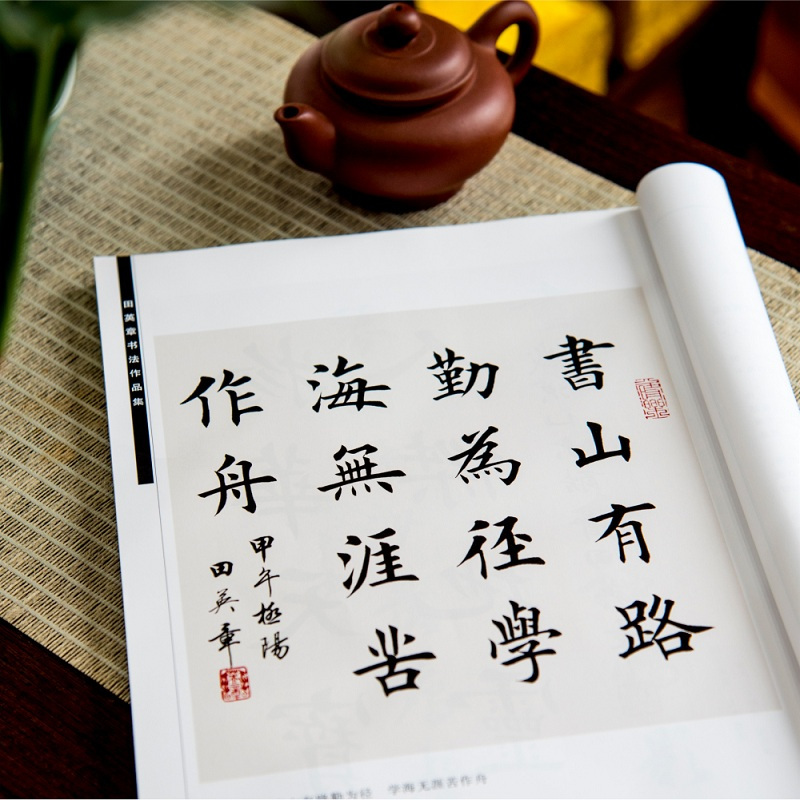 書山有路
勤為径學
海無涯苦
作舟
甲午極陽
田英章
田英章书法作品集
勤为径 学海无涯苦作舟